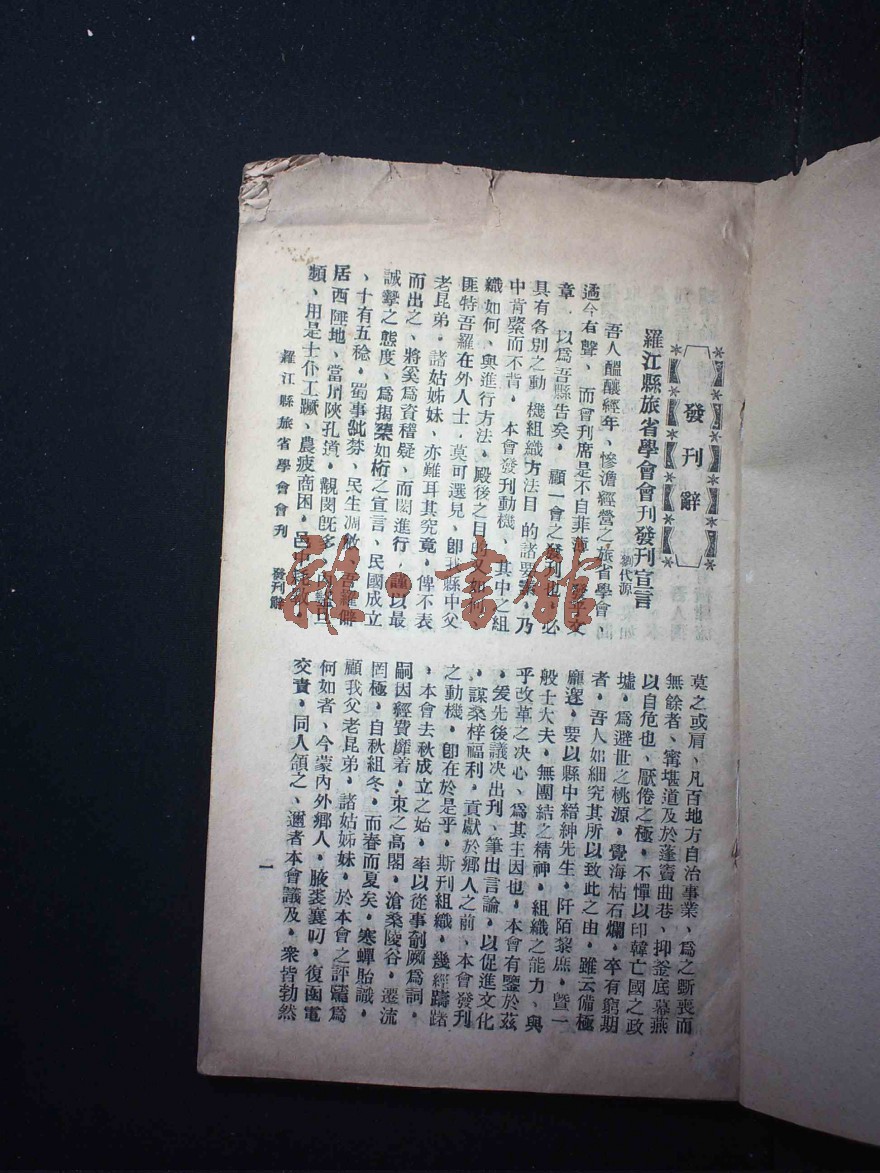 發刊辭
羅江縣旅省學會會刊發刊宣言
劉代源
吾人醞釀經年、慘澹經營之旅省學會、
遹今有聲、而會刊席是不自菲薄、發乎文
章、以爲吾縣告矣、顧一會之發刊也、必
具有各別之動機組織方法目的諸要素、乃
中肯綮而不背、本會發刊動機、其中之組
織如何、與進行方法、殿後之目的又如何
匪特吾羅在外人士、莫可選見、卽我縣中父
老昆弟、諸姑姊妹、亦難耳其究竟、俾不表
而出之、將奚爲資稽疑、而闕進行、謹以最
誠摯之態度、爲揭櫫如桁之宣言、民國成立
、十有五稔、蜀事紕棼、民生凋敝、吾羅僻
居西陲地、當川陝孔道、覯閔旣多、內
頻、用是士仆工蹶、農疲商困、邑中
莫之或肩、凡百地方自治事業、爲之斲喪而
無餘者、寗堪道及於蓬竇曲巷、抑釜底幕燕
以自危也、厭倦之極、不憚以印韓亡國之政
墟、爲避世之桃源、覺海枯石爛、卒有窮期
者、吾人如細究其所以致此之由、雖云備極
龐遝、要以縣中縉紳先生、阡陌黎庶、曁一
般士大夫、無團結之精神、組織之能力、與
乎改革之决心、爲其主因也、本會有鑒於茲
、爰先後議决出刊、筆出言論、以促進文化
、謀桑梓福利、貢獻於鄉人之前、本會發刊
之動機、卽在於是乎、斯刊組織、幾經躊躇
、本會去秋成立之始、率以從事剞劂爲詞、
嗣因經費靡着、束之高閣、滄桑陵谷、遷流
罔極、自秋組冬、而春而夏矣、寒蟬貽譏、
顧我父老昆弟、諸姑姊妹、於本會之評騭爲
何如者、今蒙內外鄉人、腋裘襄叼、復函電
交責、同人領之、邇者本會議及、衆皆勃然
羅江縣旅省學會會刊　發刊辭
一
雜·書館